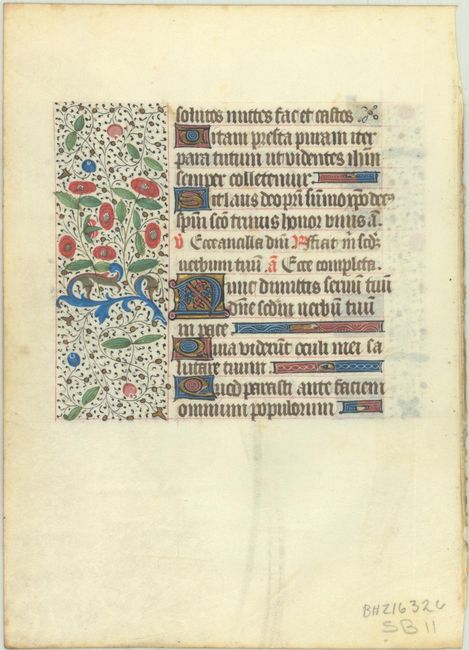 solutos mittes fac et castos
Vitam presta puram iter
para tutum ut videntes ihm
semper colletemur
Sit laus deo pri sūmo xpo dec
spiri sco trinus honor unus a.
v Ecce ancilla dni R fiat m scdʒ
verbum tuū. a Ecce completa.
Nunc dimittis servū tuū
dne scdm verbū tuū
in pace
Quia viderūt oculi mei sa
lutare tuum
Quod parasti ante faciem
omnium populorum
BH216326
SB 11